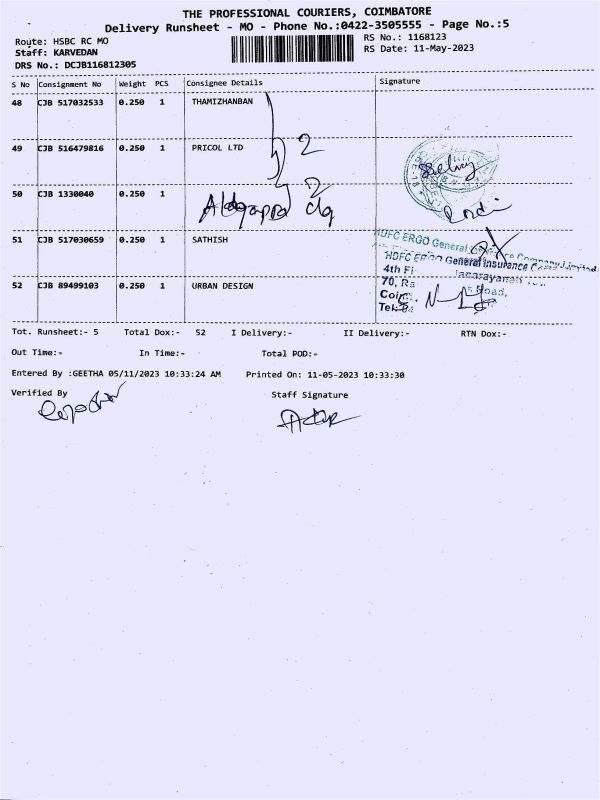 THE PROFESSIONAL COURIERS, COIMBATORE
Delivery Runsheet - MO - Phone No.:0422-3505555 - Page No.:5
Route: HSBC RC MO
RS No.: 1168123
Staff: KARVEDAN
RS Date: 11-May-2023
DRS No.: DCJB116812305
S No Consignment No Weight PCS Consignee Details Signature
48 CJB 517032533 0.250 1 THAMIZHANBAN
49 CJB 516479816 0.250 1 PRICOL LTD 2
50 CJB 1330040 0.250 1
51 CJB 517030659 0.250 1 SATHISH
HDFC ERGO General Company Limited
HDFC ERGO General Insurance
4th
52 CJB 89499103 0.250 1 URBAN DESIGN
70,
Road,
Tot. Runsheet:- 5 Total Dox:- 52 I Delivery:- II Delivery:- RTN Dox:-
Out Time:- In Time:- Total POD:-
Entered By :GEETHA 05/11/2023 10:33:24 AM Printed On: 11-05-2023 10:33:30
Verified By Staff Signature